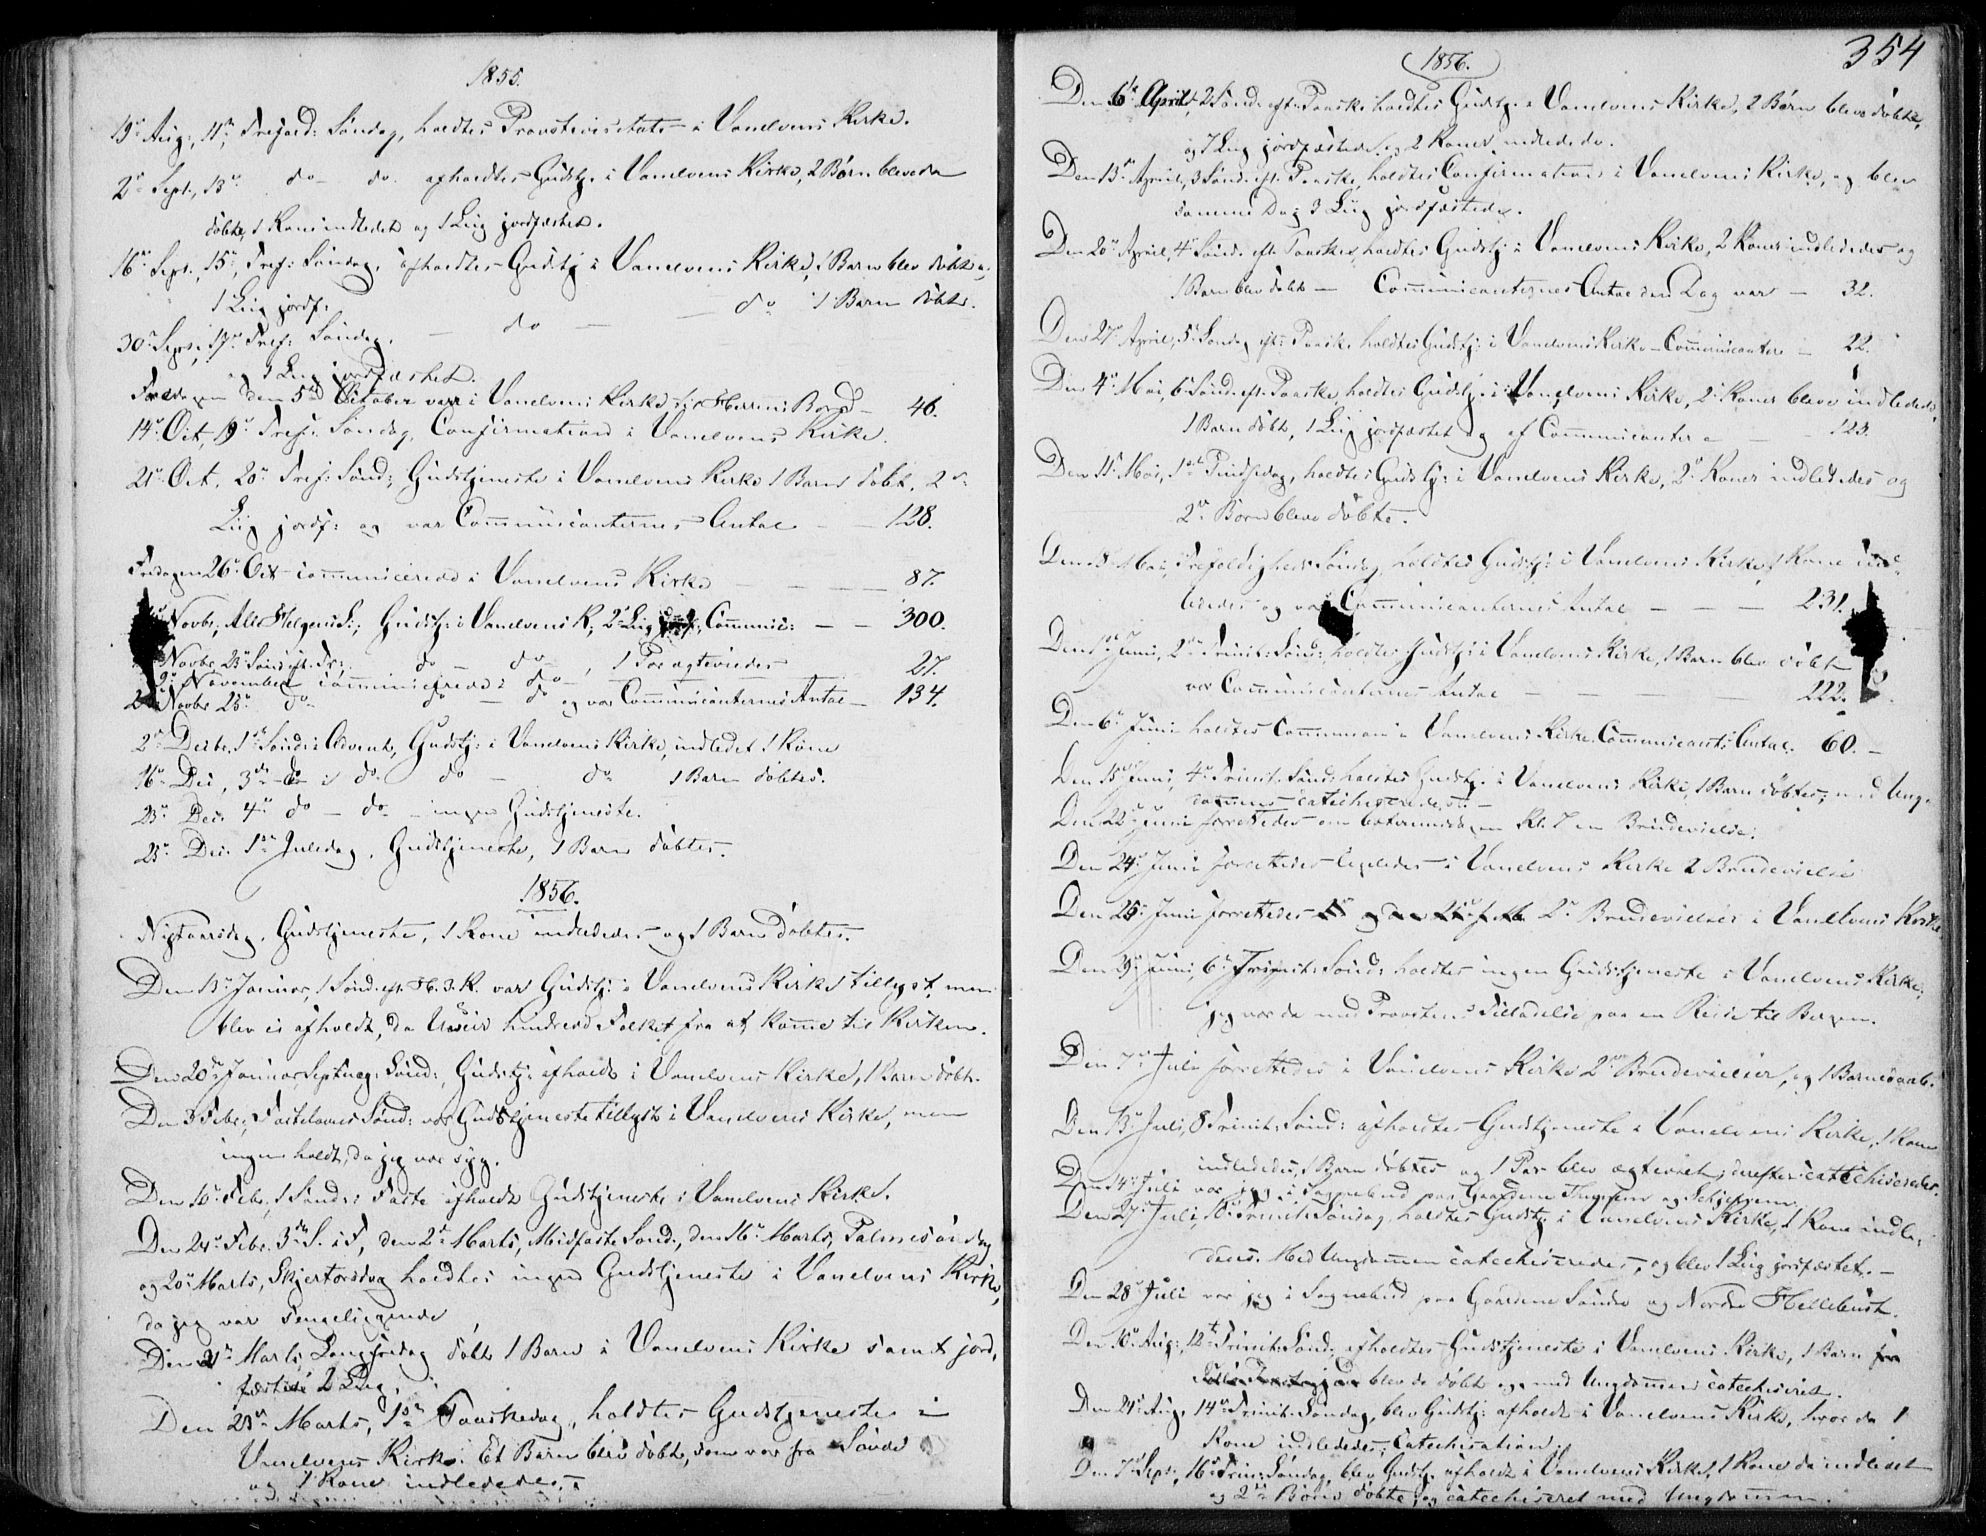 1855.
19de Aug:, 11te Trefold: Søndag, holdtes Provstevisitats i Vanelvens Kirke.
2den Sept., 13de do do afholdtes Gudstj. i Vanelvens Kirke, 2 Børn bleve da
døbte, 1 Kone indledet og 1 Liig jordfæstet.
16de Sept., 15de Tref: Søndag, afholdtes Gudstj i Vanelvens Kirke, 1 Barn blev døbt og
1 Liig jordf:
30de Septr, 17de Tref: Søndag, do do 1 Barn døbtes.
og 1 Liig jordfæstet.
Fredagen den 5te October var i Vanelvens Kirke til Herrens Bord - 46.
14de Oct, 19de Tref. Søndag, Confirmation i Vanelvens Kirke.
21de Oct, 20de Tref: Sønd:, Gudstjeneste i Vanelvens Kirke 1 Barn døbt, 2de
Liig jordf: og var Communicanternes Antal - - 128.
Fredagen 26de Oct communicerede i Vanelvens Kirke - - 87.
Novbr, Alle Helgens S:, Gudstj: i Vanelvens K, 2de Liig jordf:, Commnic: - - 300.
Novbr, 23de Sønd eft. Tr: do - do -, 1 Par ægteviedes
November communicerede i do 27.
Novbr 25de do - do - do og var Communicanternes Antal - 134.
2den Decbr. 1ste Sønd: i Advent, Gudstj: i Vanelvens Kirke, indledet 1 Kone
16de Dec, 3die do i do do - do 1 Barn døbtes.
23de Dec. 4de do - do - ingen Gudstjeneste.
25de Dec. 1ste Juledag, Gudstjeneste, 1 Barn døbtes.
1856.
Nytaarsdag, Gudstjeneste, 1 Kone indlededes og 1 Barn døbtes.
Den 13de Januar, 1 Sønd. eft. H. 3. K. var Gudstj: i Vanelvens Kirke tillyst, men
blev ei afholdt, da Uveir hindrede Folket fra at komme til Kirken.
Den 20de Januar Septuag: Sønd:, Gudstj: afholdt i Vanelvens Kirke, 1 Barn døbt.
Den 3 Febr., Fastelavns Sønd: var Gudstjeneste tillyst i Vanelvens Kirke, men
ingen holdt, da jeg var syg.
Den 10de Febr., 1 Sønd: i Faste afholdt Gudstjeneste i Vanelvens Kirke.
Den 24de Febr. 3die S. i F, den 2den Marts, Midfaste Sønd., den 16de Marts, Palmesøndag
og 20de Marts, Skjertorsdag holdtes ingen Gudstjeneste i Vanelvens Kirke,
da jeg var sengeliggende
Den 21de Marts, Langfredag døbt 1 Barn i Vanelvens Kirke samt jord,
fæstede 2 Liig.
Den 23de Marts, 1ste Paaskedag, holdtes Gudstjeneste i
Vanelvens Kirke. Et Barn blev døbt, som var fra Søvde
og 1 Kone indlededes.
354
1856.
Den 6te April, 2 Sønd. eft. Paaske holdtes Gudstj. i Vanelvens Kirke, 2 Børn bleve døbte,
og 1 Liig jordfæstedes og 2 Koner indledede.
Den 13de April, 3 Sønd. eft. Paaske, holdtes Confirmation i Vanelvens Kirke, og blev
samme Dag 3 Liig jordfæstede.
Den 20de April, 4de Sønd. eft Paaske, holdtes Gudstj i Vanelvens Kirke, 2 Koner indlededes og
1 Barn blev døbt - Communicanternes Antal den Dag var - 32.
Den 27de April, 5te Søndag eft. Paask. holdtes Gudstj: i Vanelvens Kirke - Communicantere - 22.
Den 4de Mai, 6 Sønd. eft. Paaske, holdtes Gudstj. i Vanelvens Kirke, 2 Koner bleve indledede,
1 Barn døbt, 1 Liig jordfæstet og af Communicanter - 123.
Den 11te Mai, 1ste Pindsedag, holdtes Gudstj: i Vanelvens Kirke, 2de Koner indlededes og
2de Børn bleve døbte.
Den 18 Mai, Trefoldigheds Søndag, holdtes Gudstj: i Vanelvens Kirke, 1 Kone ind-
lededes og var Communicanternes Antal - - - 231.
Den 1ste Juni, 2den Trinit: Sønd:, holdtes Gudstj i Vanelvens Kirke, 1 Barn blev døbt
var Communicanternes Antal - - - 222.
Den 6te Juni holdtes Communion i Vanelvens Kirke. Communicants Antal. 60. -
Den 15de Juni, 4de Trinit. Sønd: holdtes Gudstj. i Vanelvens Kirke, 1 Barn døbtes; med Ung-
dommen catechiseredes -
Den 22de Juni forrettedes om Kl. 7 en Brudevielse.
Den 24de Juni forrettedes ligeledes i Vanelvens Kirke 2 Brudevielse
Den 25de Juni forrettedes 2de Brudevielser i Vanelvens Kirke.
Den 29de Juni, 6te Trinit: Sønd: holdtes ingen Gudstjeneste i Vanelvens Kirke,
jeg var da med Provstens Tilladelse paa en Reise til Bergen.
Den 7de Juli forrettedes i Vanelvens Kirke 2de Brudevielser, og 1 Barnedaab.
Den 13de Juli, 8 Trinit: Sønd: afholdtes Gudstjeneste i Vanelvens Kirke, 1 Kone
indlededes, 1 Barn døbtes og 1 Par blev ægteviet; derefter catechiseredes.
Den 14de Juli var jeg i Sognebud paa Gaardene og
Den 27de Juli, 10de Trinit: Søndag, holdtes Gudstj. i Vanelvens Kirke, 1 Kone indle-
dedes. Med Ungdommen catechiseredes, og blev 1 Liig jordfæstet. -
Den 28de Juli var jeg i Sognebud paa Gaardene Søndre og Nordre Hellebust.
Den 10de Aug:, 12te Trinit: Sønd: afholdtes Gudstjeneste i Vanelvens Kirke, 1 Barn
blev da døbt og med Ungdommen catechiseret.
Den 24de Aug. 14de Trinit. Søndag, blev Gudstj: afholdt i Vanelvens Kirke, hvor da 1
Kone indlededes; Catechisation.
Den 7de Sept:, 16de Trin: Søndag, blev Gudstj. afholdt i Vanelvens Kirke, 1 Kone da indledet
og 2de Børn døbte, og catechiseret med Ungdommen.